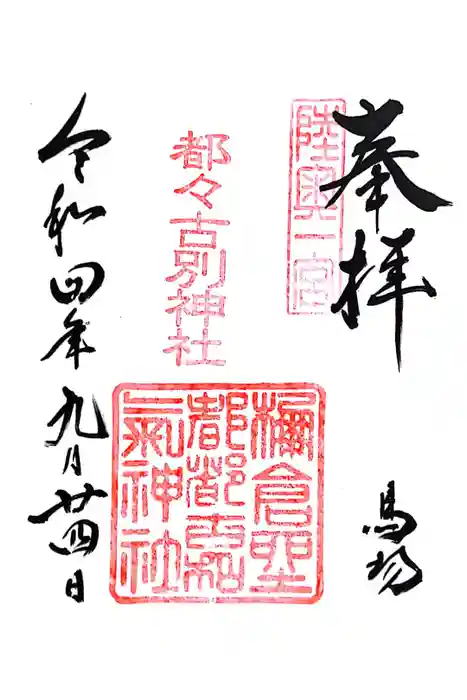 奉拝
陸奥一宮
馬場
都々古別神社
令和四年九月廿四日